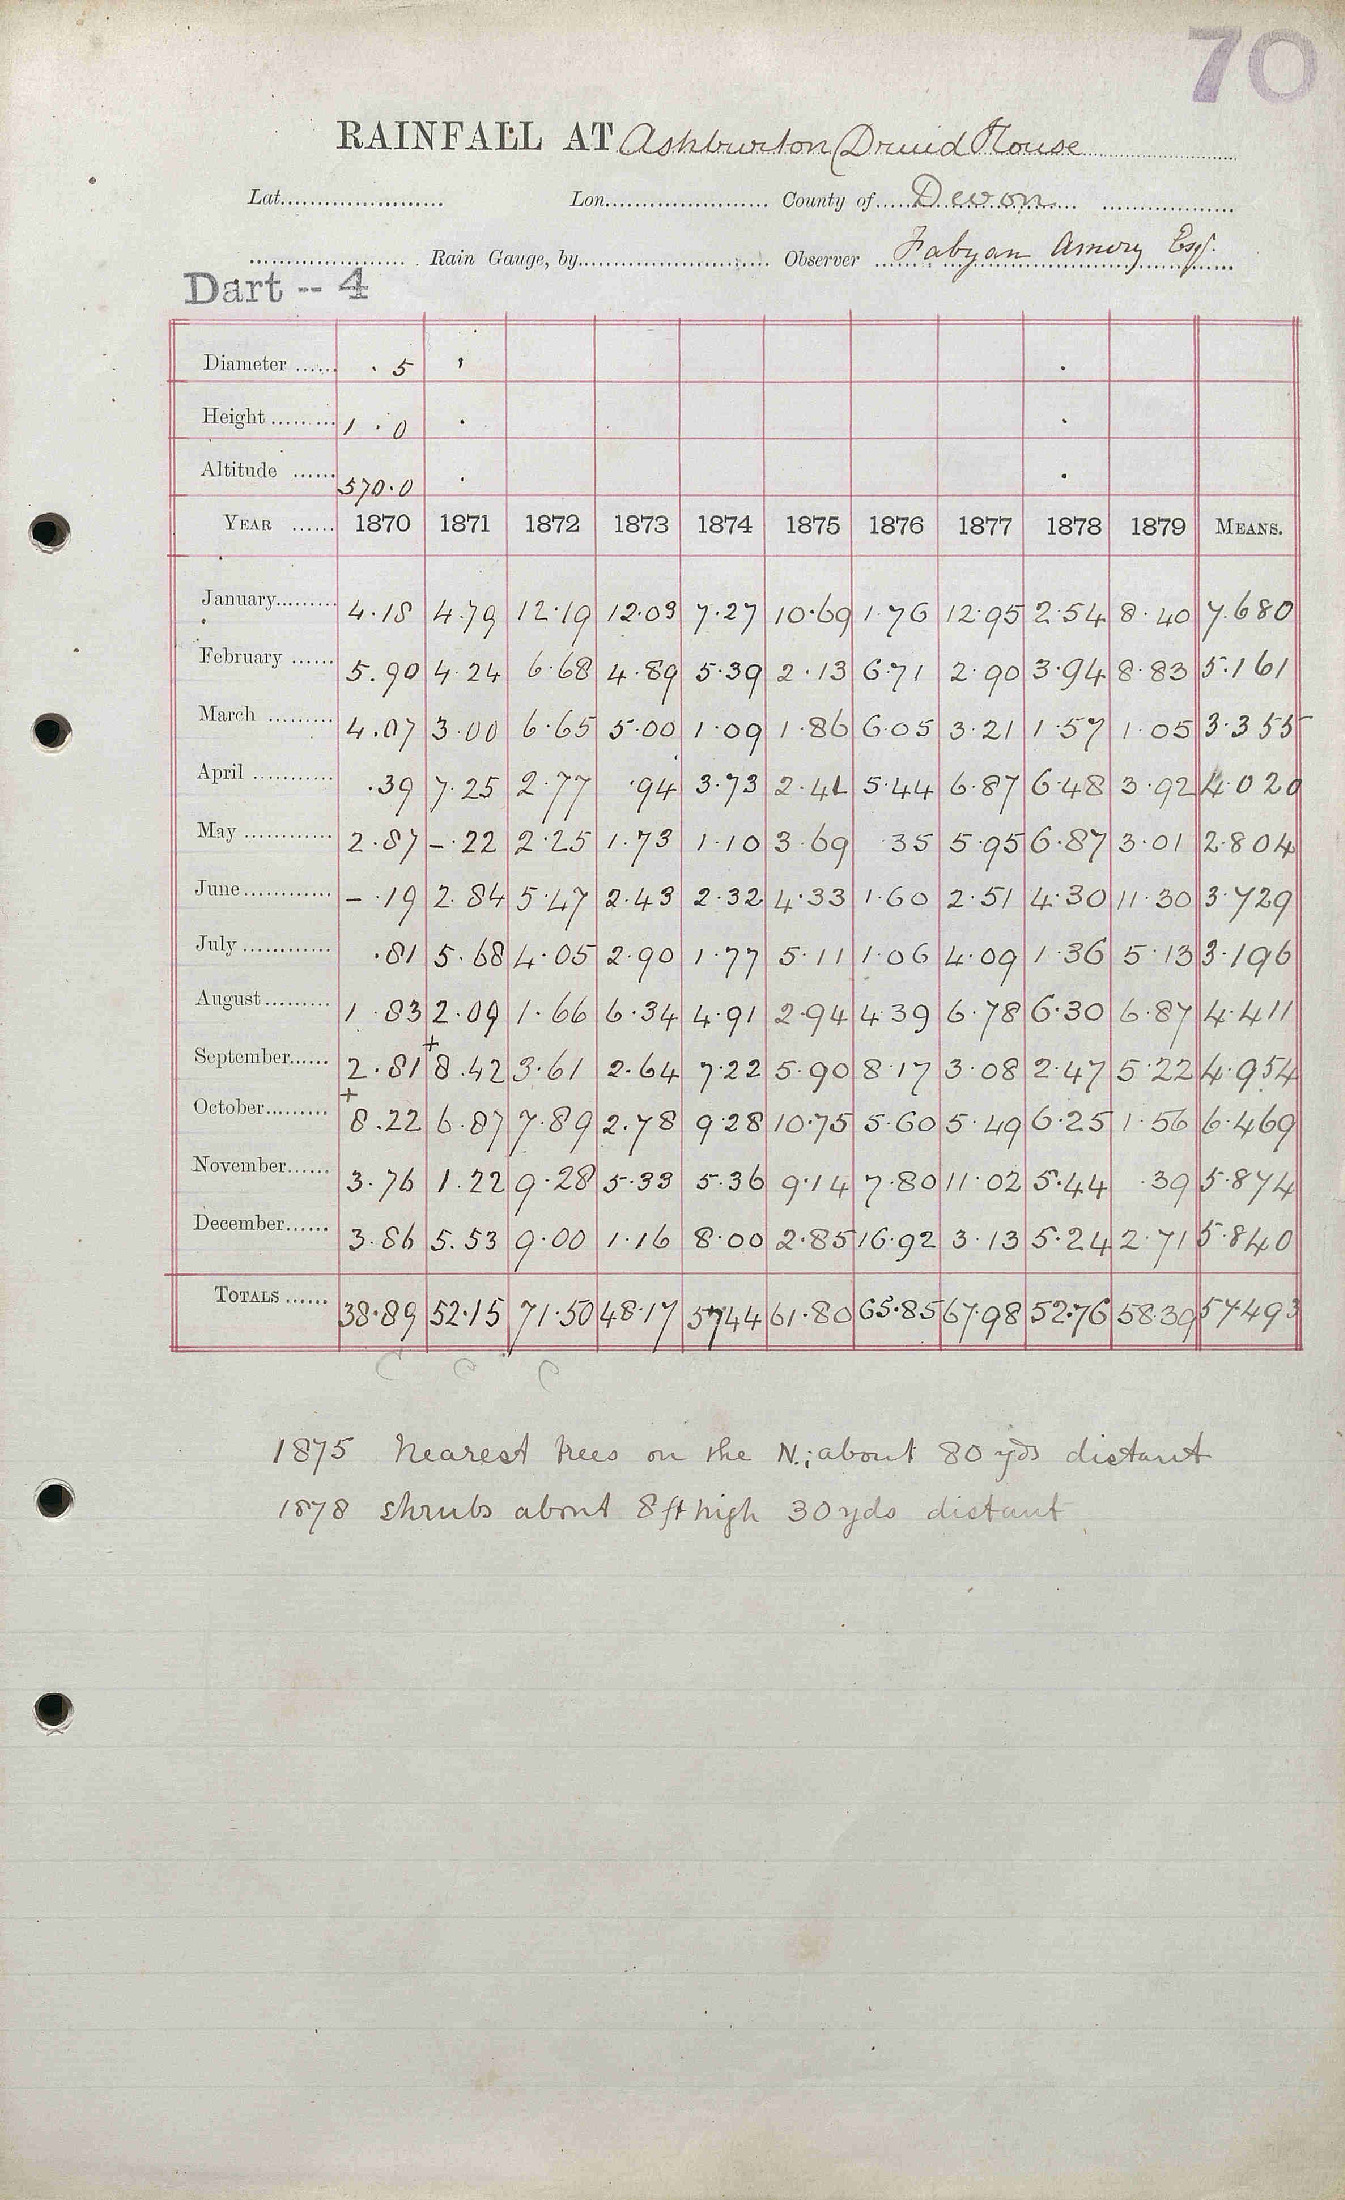 70
RAINFALL AT Ashburton (Druid House
Lat. Lon. County of Devon
Rain Gauge, by Observer Fabyan Amery Esq.
Dart -- 4
Diameter · 5
Height 1 · 0
Altitude 570·0
YEAR 1870 1871 1872 1873 1874 1875 1876 1877 1878 1879 MEANS.
January 4·18 4·79 12·19 12·03 7·27 10·69 1·76 12·95 2·54 8·40 7·680
February 5.90 4·24 6·68 4·89 5·39 2·13 6·71 2·90 3·94 8·83 5·161
March 4.07 3·00 6·65 5·00 1·09 1·86 6·05 3·21 1·57 1·05 3·355
April ·39 7·25 2·77 ·94 3·73 2·41 5·44 6·87 6·48 3·92 4·020
May 2·87 -·22 2·25 1·73 1·10 3·69 ·35 5·95 6·87 3·01 2·804
June -·19 2·84 5·47 2·43 2·32 4·33 1·60 2·51 4·30 11·30 3·729
July ·81 5·68 4·05 2·90 1·77 5·11 1·06 4·09 1·36 5·13 3·196
August 1·83 2·09 1·66 6·34 4·91 2·94 4·39 6·78 6·30 6·87 4·411
September 2·81 +8.42 3·61 2·64 7·22 5·90 8·17 3·08 2·47 5·22 4·954
October +8.22 6·87 7·89 2·78 9·28 10·75 5·60 5·49 6·25 1·56 6·469
November 3·76 1·22 9·28 5·33 5·36 9·14 7·80 11·02 5·44 ·39 5·874
December 3·86 5.53 9·00 1·16 8·00 2·85 16·92 3·13 5·24 2·71 5·840
TOTALS 38·89 52·15 71·50 48·17 57·44 61·80 65·85 67·98 52·76 58·39 57·493
1875 Nearest trees on the N.; about 80 yds distant
1878 Shrubs about 8 ft high 30 yds distant